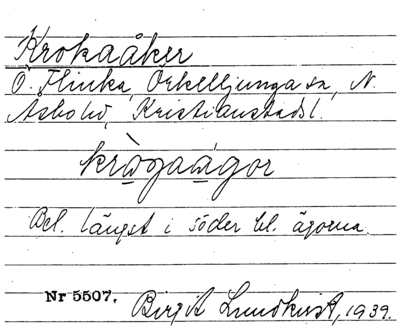 Krokaåker
Ö. Flinka, Örkelljunga sn, N.
Åsbo hd, Kristianstads l.
kròɡaàɡor
Bel. längst i söder bl. ägorna.
Nr 5507. Birgit Lundkvist, 1939.